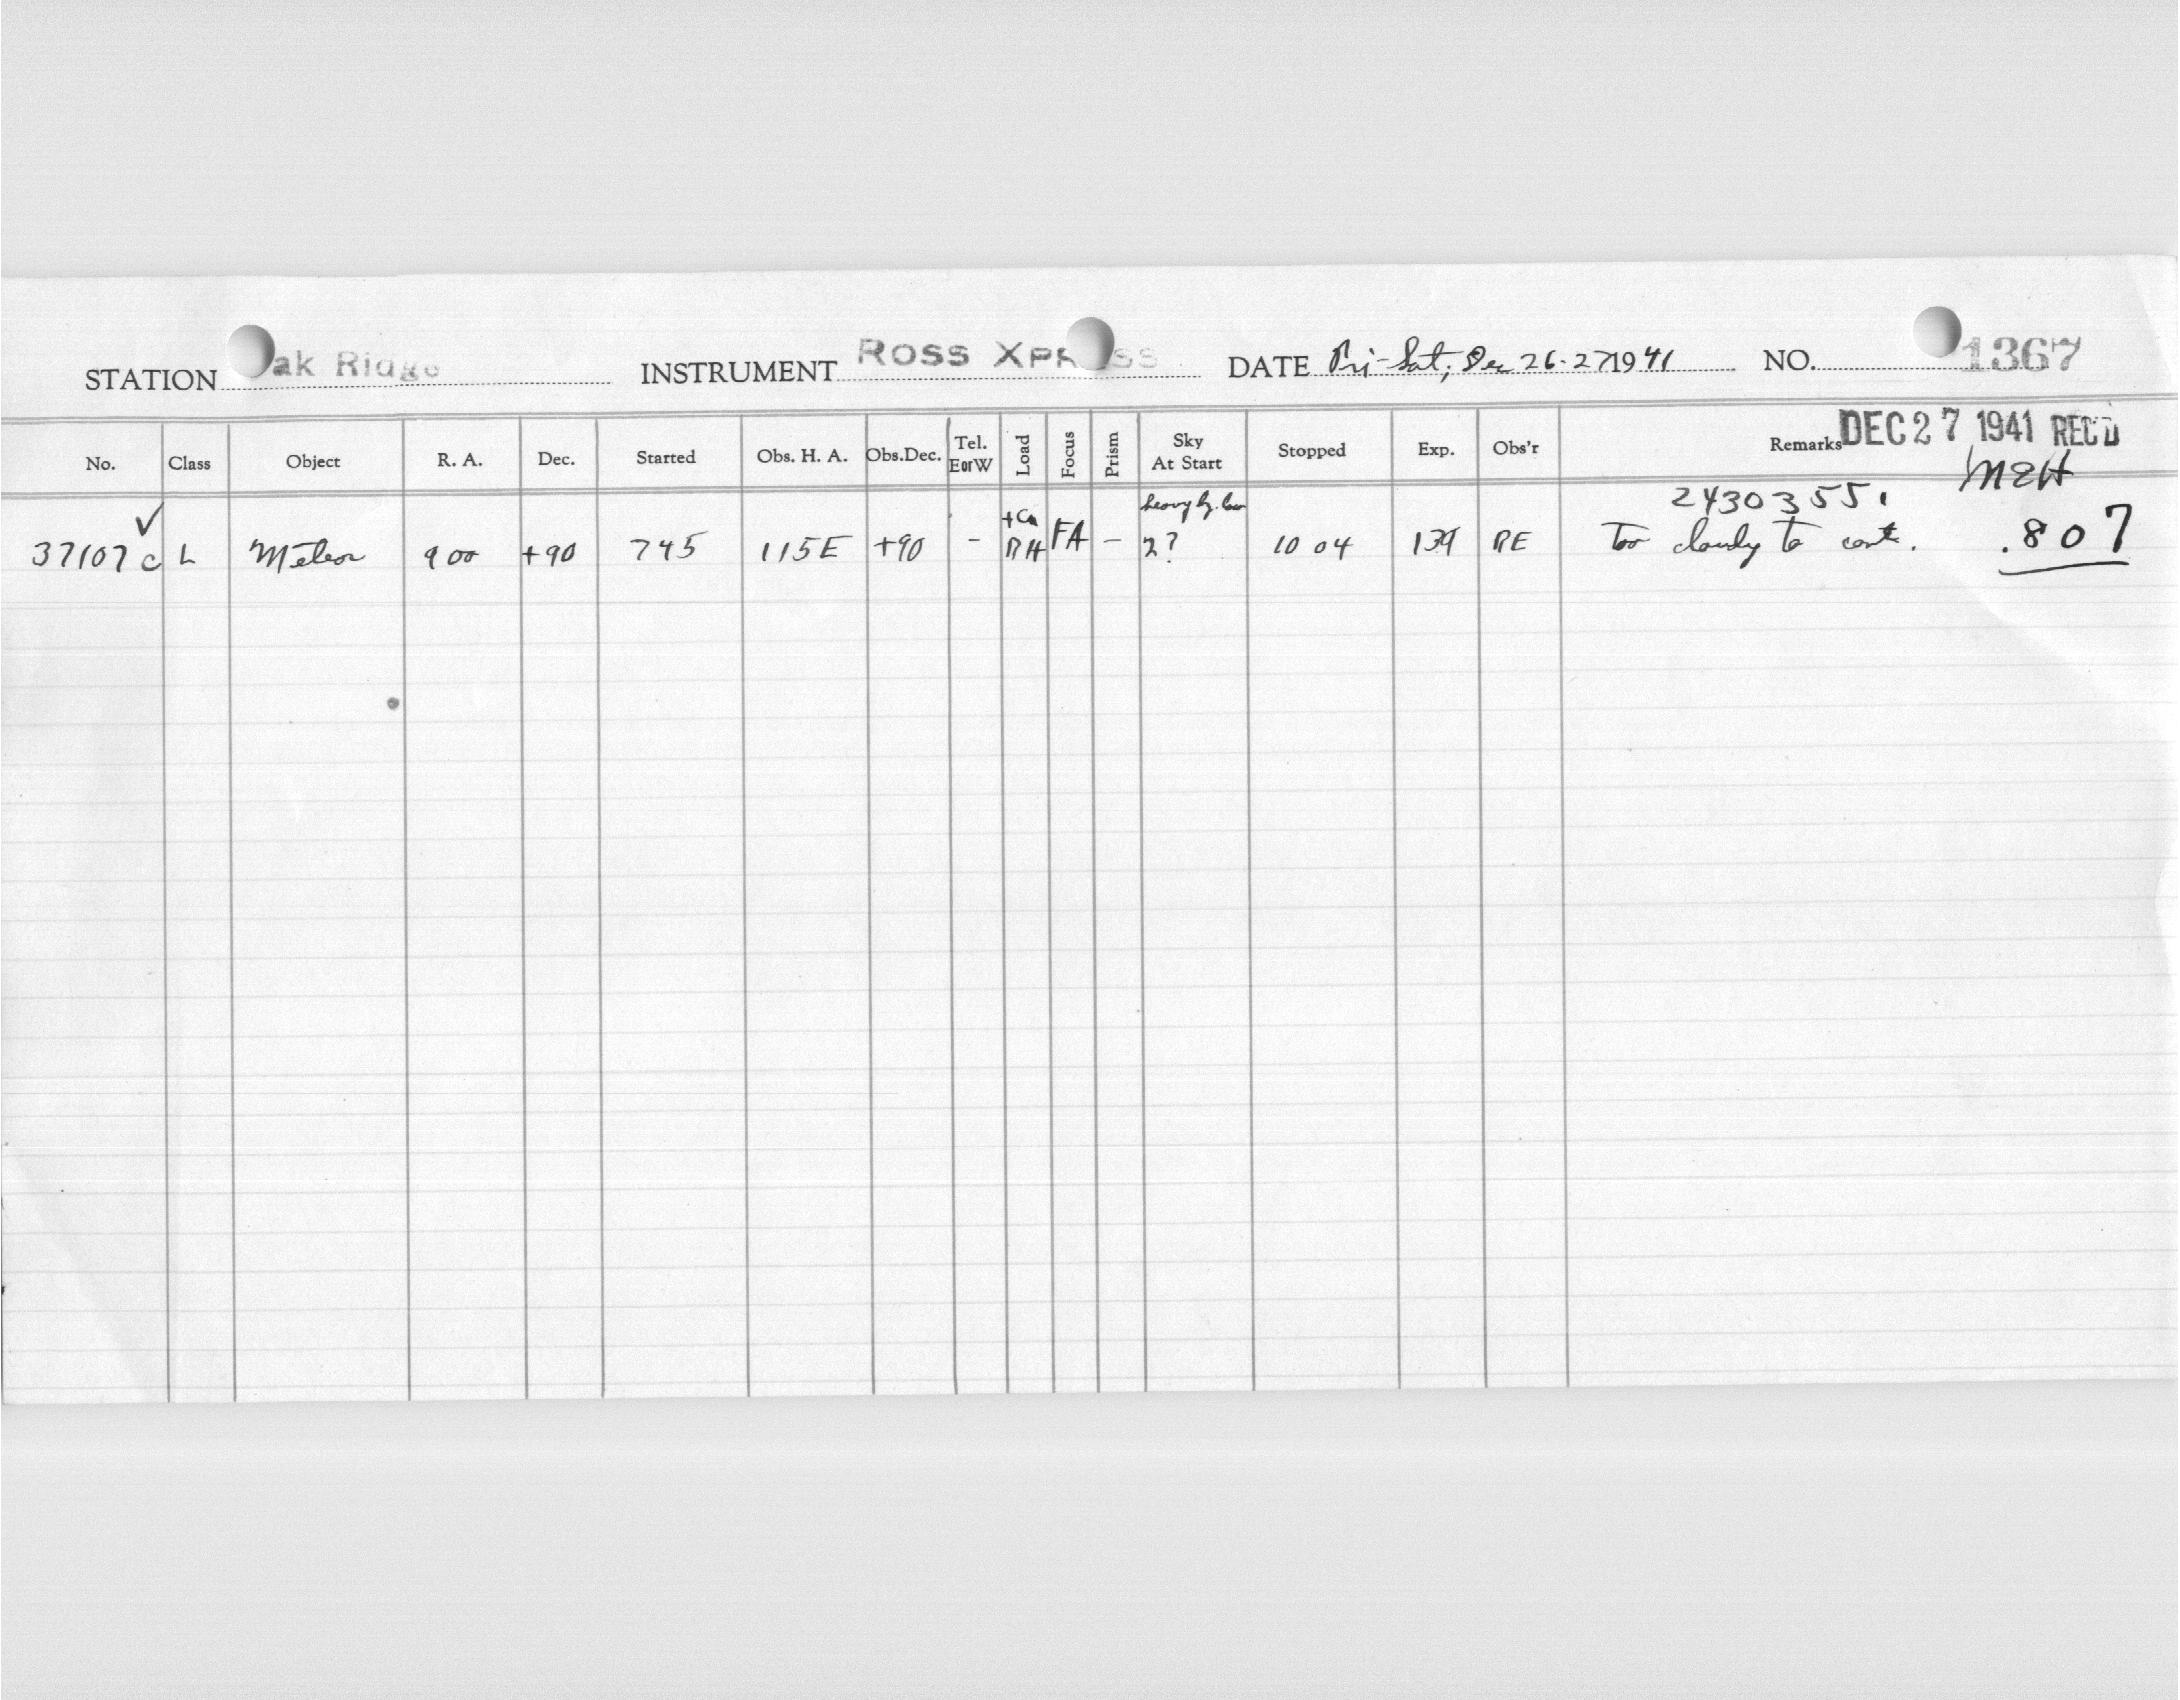 STATION Oak Ridge INSTRUMENT ROSS XPRESS DATE Fri-Sat, Dec 26-27 1941 NO. 1367
No. Class Object R. A. Dec. Started Obs. H. A. Obs.Dec. Tel. EorW Load Focus Prism Sky At Start Stopped Exp. Obs'r Remarks DEC 27 1941 REC'D
MEH
✓ heavy 2430355.
37107 c L Meteor 9 00 +90 7 45 1 15 E +90 - RH FA - 2? 10 04 139 RE Too cloudy to cont. .807